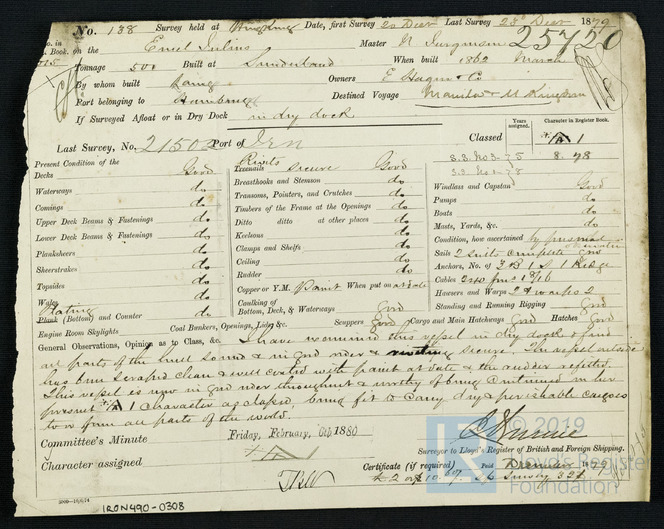 No. 138 Survey held at Hong Kong Date, first Survey 20 Decr Last Survey 23 Decr 1879
on the Emil Julius Master N Jurgensen 25720
Tonnage 500 Built at Sunderland When built 1862 March
By whom built Laing Owners E Hagen & Co.
Port belonging to Hamburg Destined Voyage Manila & U Kingdom
If Surveyed Afloat or in Dry Dock in dry dock
Last Survey, No. 21502 Port of Classed
Years assigned. Character in Register Book.
A 1
S.S. No 3-75 8.78
Present Condition of the
Decks Good
Waterways do
Comings do
Upper Deck Beams & Fastenings do
Lower Deck Beams & Fastenings do
Planksheers do
Sheerstrakes do
Topsides do
Wales do
Plating
Plank (Bottom) and Counter do
Engine Room Skylights
Rivets
Treenails secure Good
Breasthooks and Stemson do
Transoms, Pointers, and Crutches do
Timbers of the Frame at the Openings do
Ditto ditto at other places do
Keelsons do
Clamps and Shelfs do
Ceiling do
Rudder do
Copper or Y.M. Paint When put on at date
Caulking of
Bottom, Deck, & Waterways Good
Windlass and Capstan Good
Pumps do
Boats do
Masts, Yards, &c. do
Condition, how ascertained by personal
Sails 2 suits complete good
Anchors, No. of 3 B 1 S 1 Kedge
Cables
Hawsers and Warps 2 & warps 2
Standing and Running Rigging Good
Coal Bunkers, Openings, Lids, &c. Scuppers Good Cargo and Main Hatchways Good Hatches Good
General Observations, Opinion as to Class, &c. I have examined this vessel in dry dock & find
all parts of the hull sound & in good order & secure. The vessel outside
has been scraped clean & well coated with paint at date & the rudder refitted.
This vessel is now in good order throughout & worthy of being continued in her
present A 1 Character as classed, being fit to carry dry & perishable cargoes
to & from all parts of the world.
Committee's Minute Friday, February 6th 1880
Character assigned A 1
Surveyor to Lloyd's Register of British and Foreign Shipping.
Certificate (if required) Paid
5000-16/6/74
IRON490-0308
© 2019
Lloyd's Register
Foundation